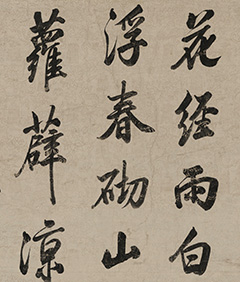 花経雨白
浮春砌山
蘿薜涼